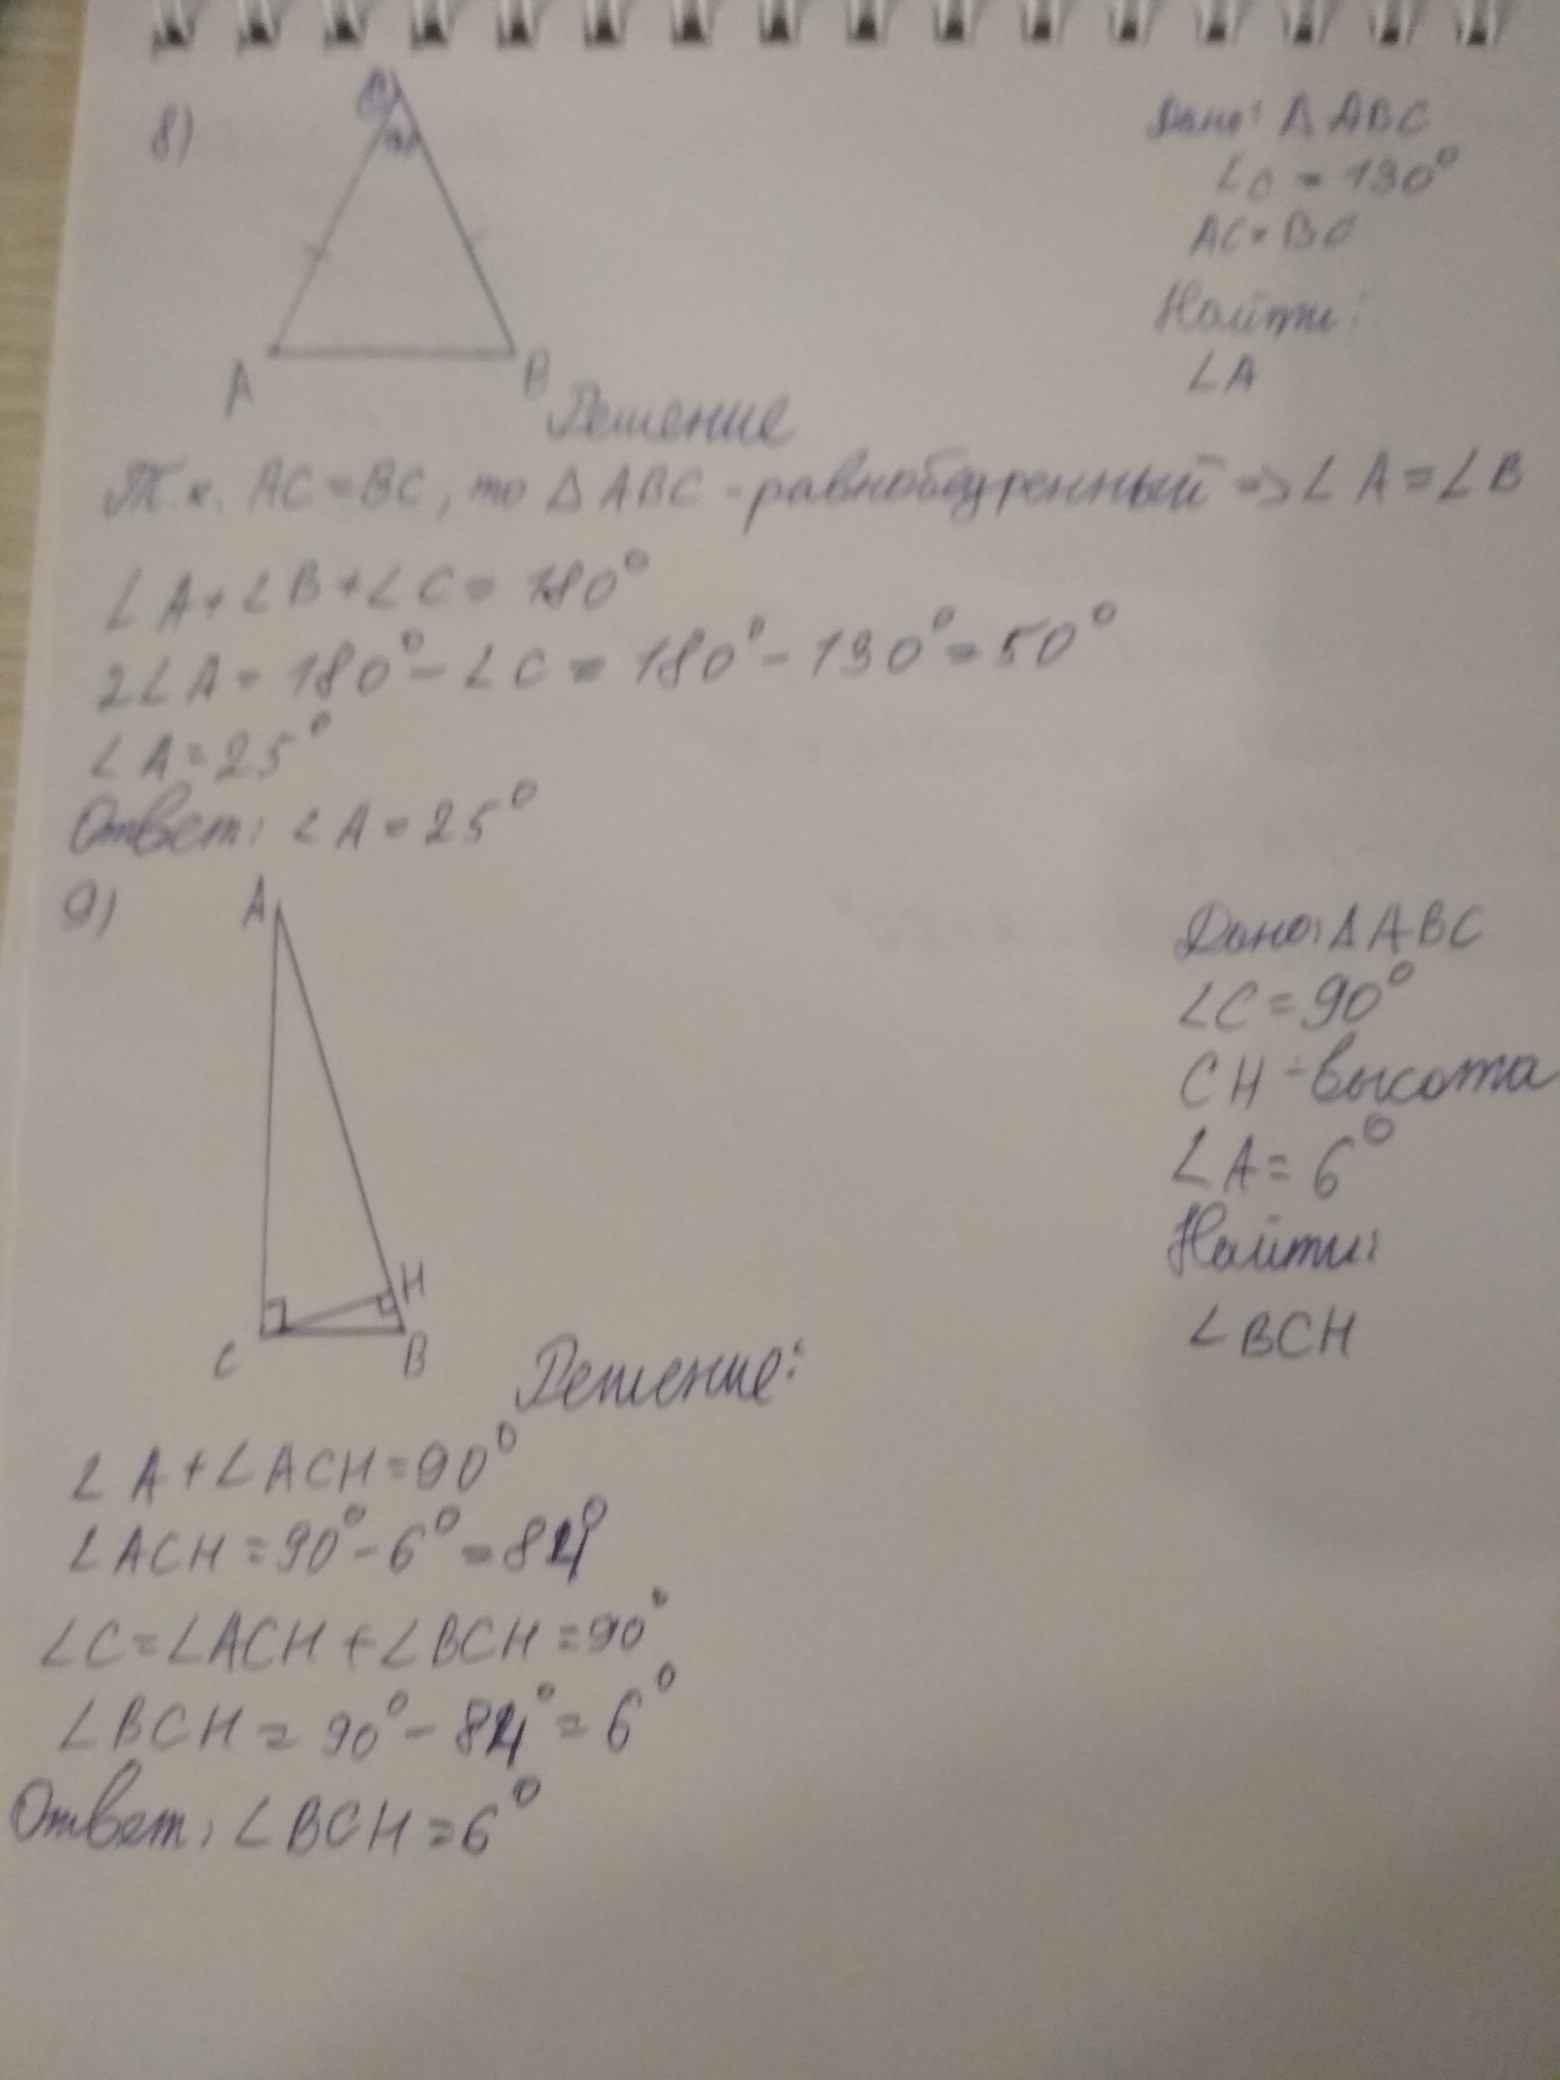 8)
Дано: Δ ABC
∠C = 130°
AC = BC
Найти:
∠A
A
B
Решение
Т.к. AC = BC, то Δ ABC - равнобедренный => ∠A = ∠B
∠A + ∠B + ∠C = 180°
2∠A = 180° - ∠C = 180° - 130° = 50°
∠A = 25°
Ответ: ∠A = 25°
9)
A
H
C
B
Дано: Δ ABC
∠C = 90°
CH - высота
∠A = 6°
Найти:
∠BCH
Решение:
∠A + ∠ACH = 90°
∠ACH = 90° - 6° = 84°
∠C = ∠ACH + ∠BCH = 90°
∠BCH = 90° - 84° = 6°
Ответ: ∠BCH = 6°